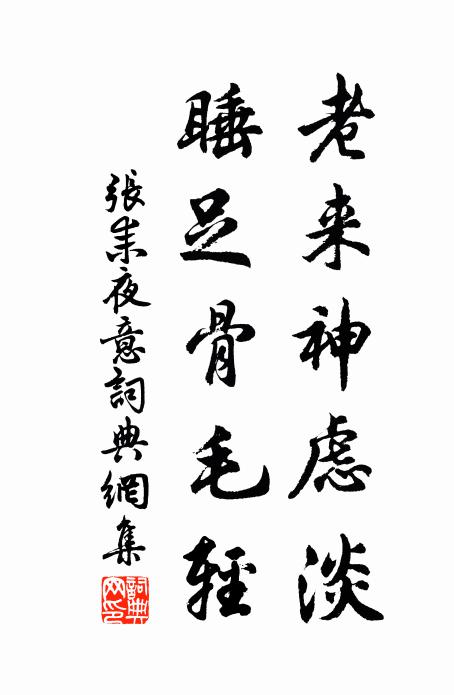 老来神虑淡
睡足骨毛轻
張耒夜意詞典網集
詞典
网印